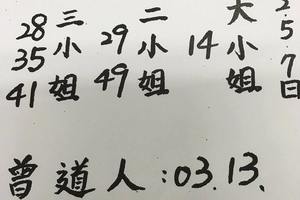 2.5.7日
大小姐
14
二小姐
29
49
三小姐
28
35
41
曾道人:03.13.